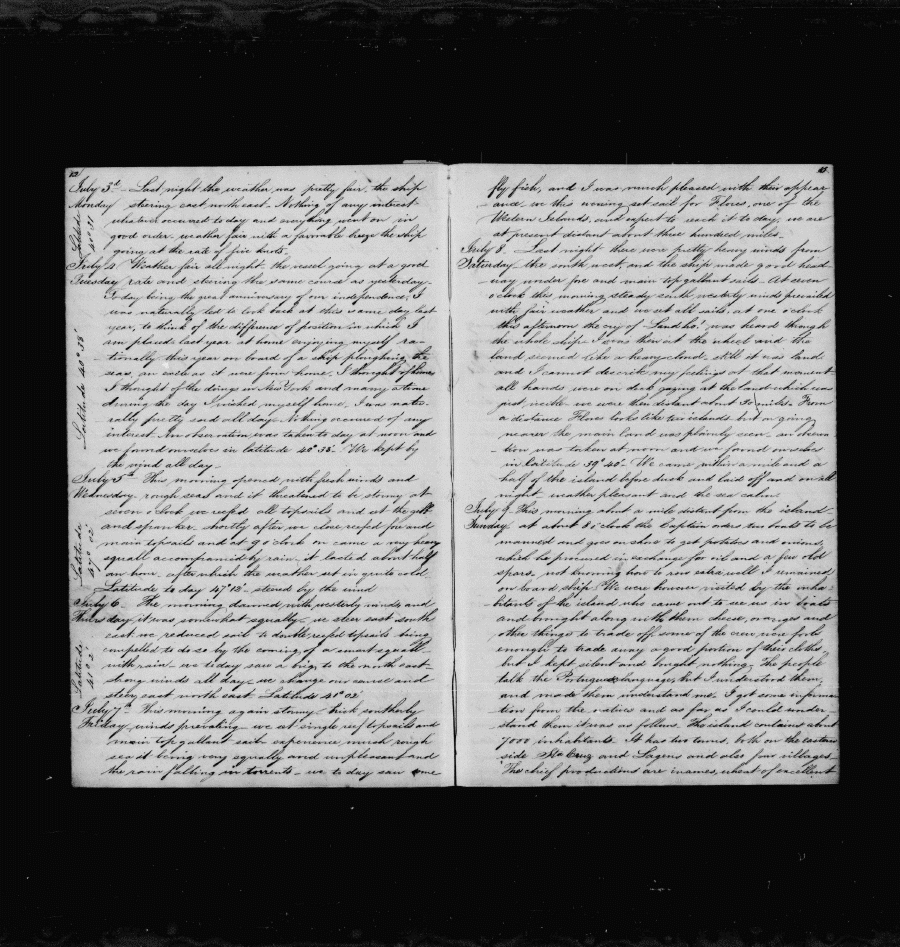 12
July 3d Last night the weather was pretty fair, the ship
Monday steering east north east. Nothing of any interest
whatever occurred to day and everything went on in
good order, weather fair with a favorable breeze the ship
going at the rate of five knots.
Latitude 40° 31'
July 4 Weather fair all night, the vessel going at a good
Tuesday rate and steering the same course as yesterday.
To day being the great anniversary of our independence, I
was naturally led to look back at this same day last
year, to think of the difference of position in which I
am placed last year at home enjoying myself ra-
tionally this year on board of a ship ploughing the
seas, in search as it were from home. I thought of home
I thought of the doings in New York and many a time
during the day I wished myself home, I was natu-
rally pretty sad all day. Nothing occurred of any
interest. An observation was taken to day at noon and
we found ourselves in latitude 40° 38'. We kept by
the wind all day.
Latitude 40° 38'
July 5th This morning opened with fresh winds and
Wednesday rough seas and it threatened to be stormy at
seven o'clock we reefed all topsails and set the gib
and spanker, shortly after we close reefed fore and
main topsails and at 9 o'clock on came a very heavy
squall accompanied by rain, it lasted about half
an hour, after which the weather set in quite cold.
Latitude to day 47° 12' steered by the wind
Latitude 47° 02'
July 6. The morning dawned with westerly winds and
Thursday, it was somewhat squally. we steer east south
east we reduced sail to double reefed topsails being
compelled to do so by the coming of a smart squall
with rain. we to day saw a brig, to the north east
strong winds all day. we change our course and
steer east north east. Latitude 41° 02'
Latitude 41° 2'
July 7th This morning again stormy. thick southerly
Friday winds prevailing. we at single reef topsails and
main top gallant sail. experience much rough
sea it being very squally and unpleasant and
the rain falling in torrents. we to day saw some
13.
fly fish, and I was much pleased with their appear-
ance. in this evening set sail for Flores, one of the
Western Islands, and expect to reach it to day, we are
at present distant about three hundred miles.
July 8 Last night there were pretty heavy winds from
Saturday the south west, and the ship made good head-
way under fore and main top gallant sails. At seven
o'clock this morning steady south westerly winds prevailed
with fair weather and we set all sails, at one o'clock
this afternoon the cry of "Land ho!" was heard through
the whole ship. I was then at the wheel and the
land seemed like a heavy cloud. still it was land
and I cannot describe my feelings at that moment
all hands were on deck gazing at the land which was
just visible we were then distant about 30 miles. From
a distance Flores looks like two islands but on going
nearer the main land was plainly seen. an observa-
tion was taken at noon and we found ourselves
in Latitude 39° 40'. We came within a mile and a
half of the island before dusk and laid off and on all
night. weather pleasant and the sea calm.
July 9. This morning about a mile distant from the island.
Sunday at about 8 o'clock the Captain orders two boats to be
manned and goes on shore to get potatoes and onions,
which he procured in exchange for oil and a few old
spars, not knowing how to row extra well I remained
on board ship. We were however visited by the inha-
bitants of the island who came out to see us in boats
and brought along with them cheese, oranges and
other things to trade off, some of the crew were fools
enough to trade away a good portion of their clothes,
but I kept silent and bought nothing. The people
talk the Portuguese language, but I understood them,
and made them understand me. I got some informa-
tion from the natives and as far as I could under-
stand them it was as follows. The island contains about
7000 inhabitants. It has two towns, both on the eastern
side Sta Cruz and Lagens and also four villages.
The chief productions are wheat of excellent